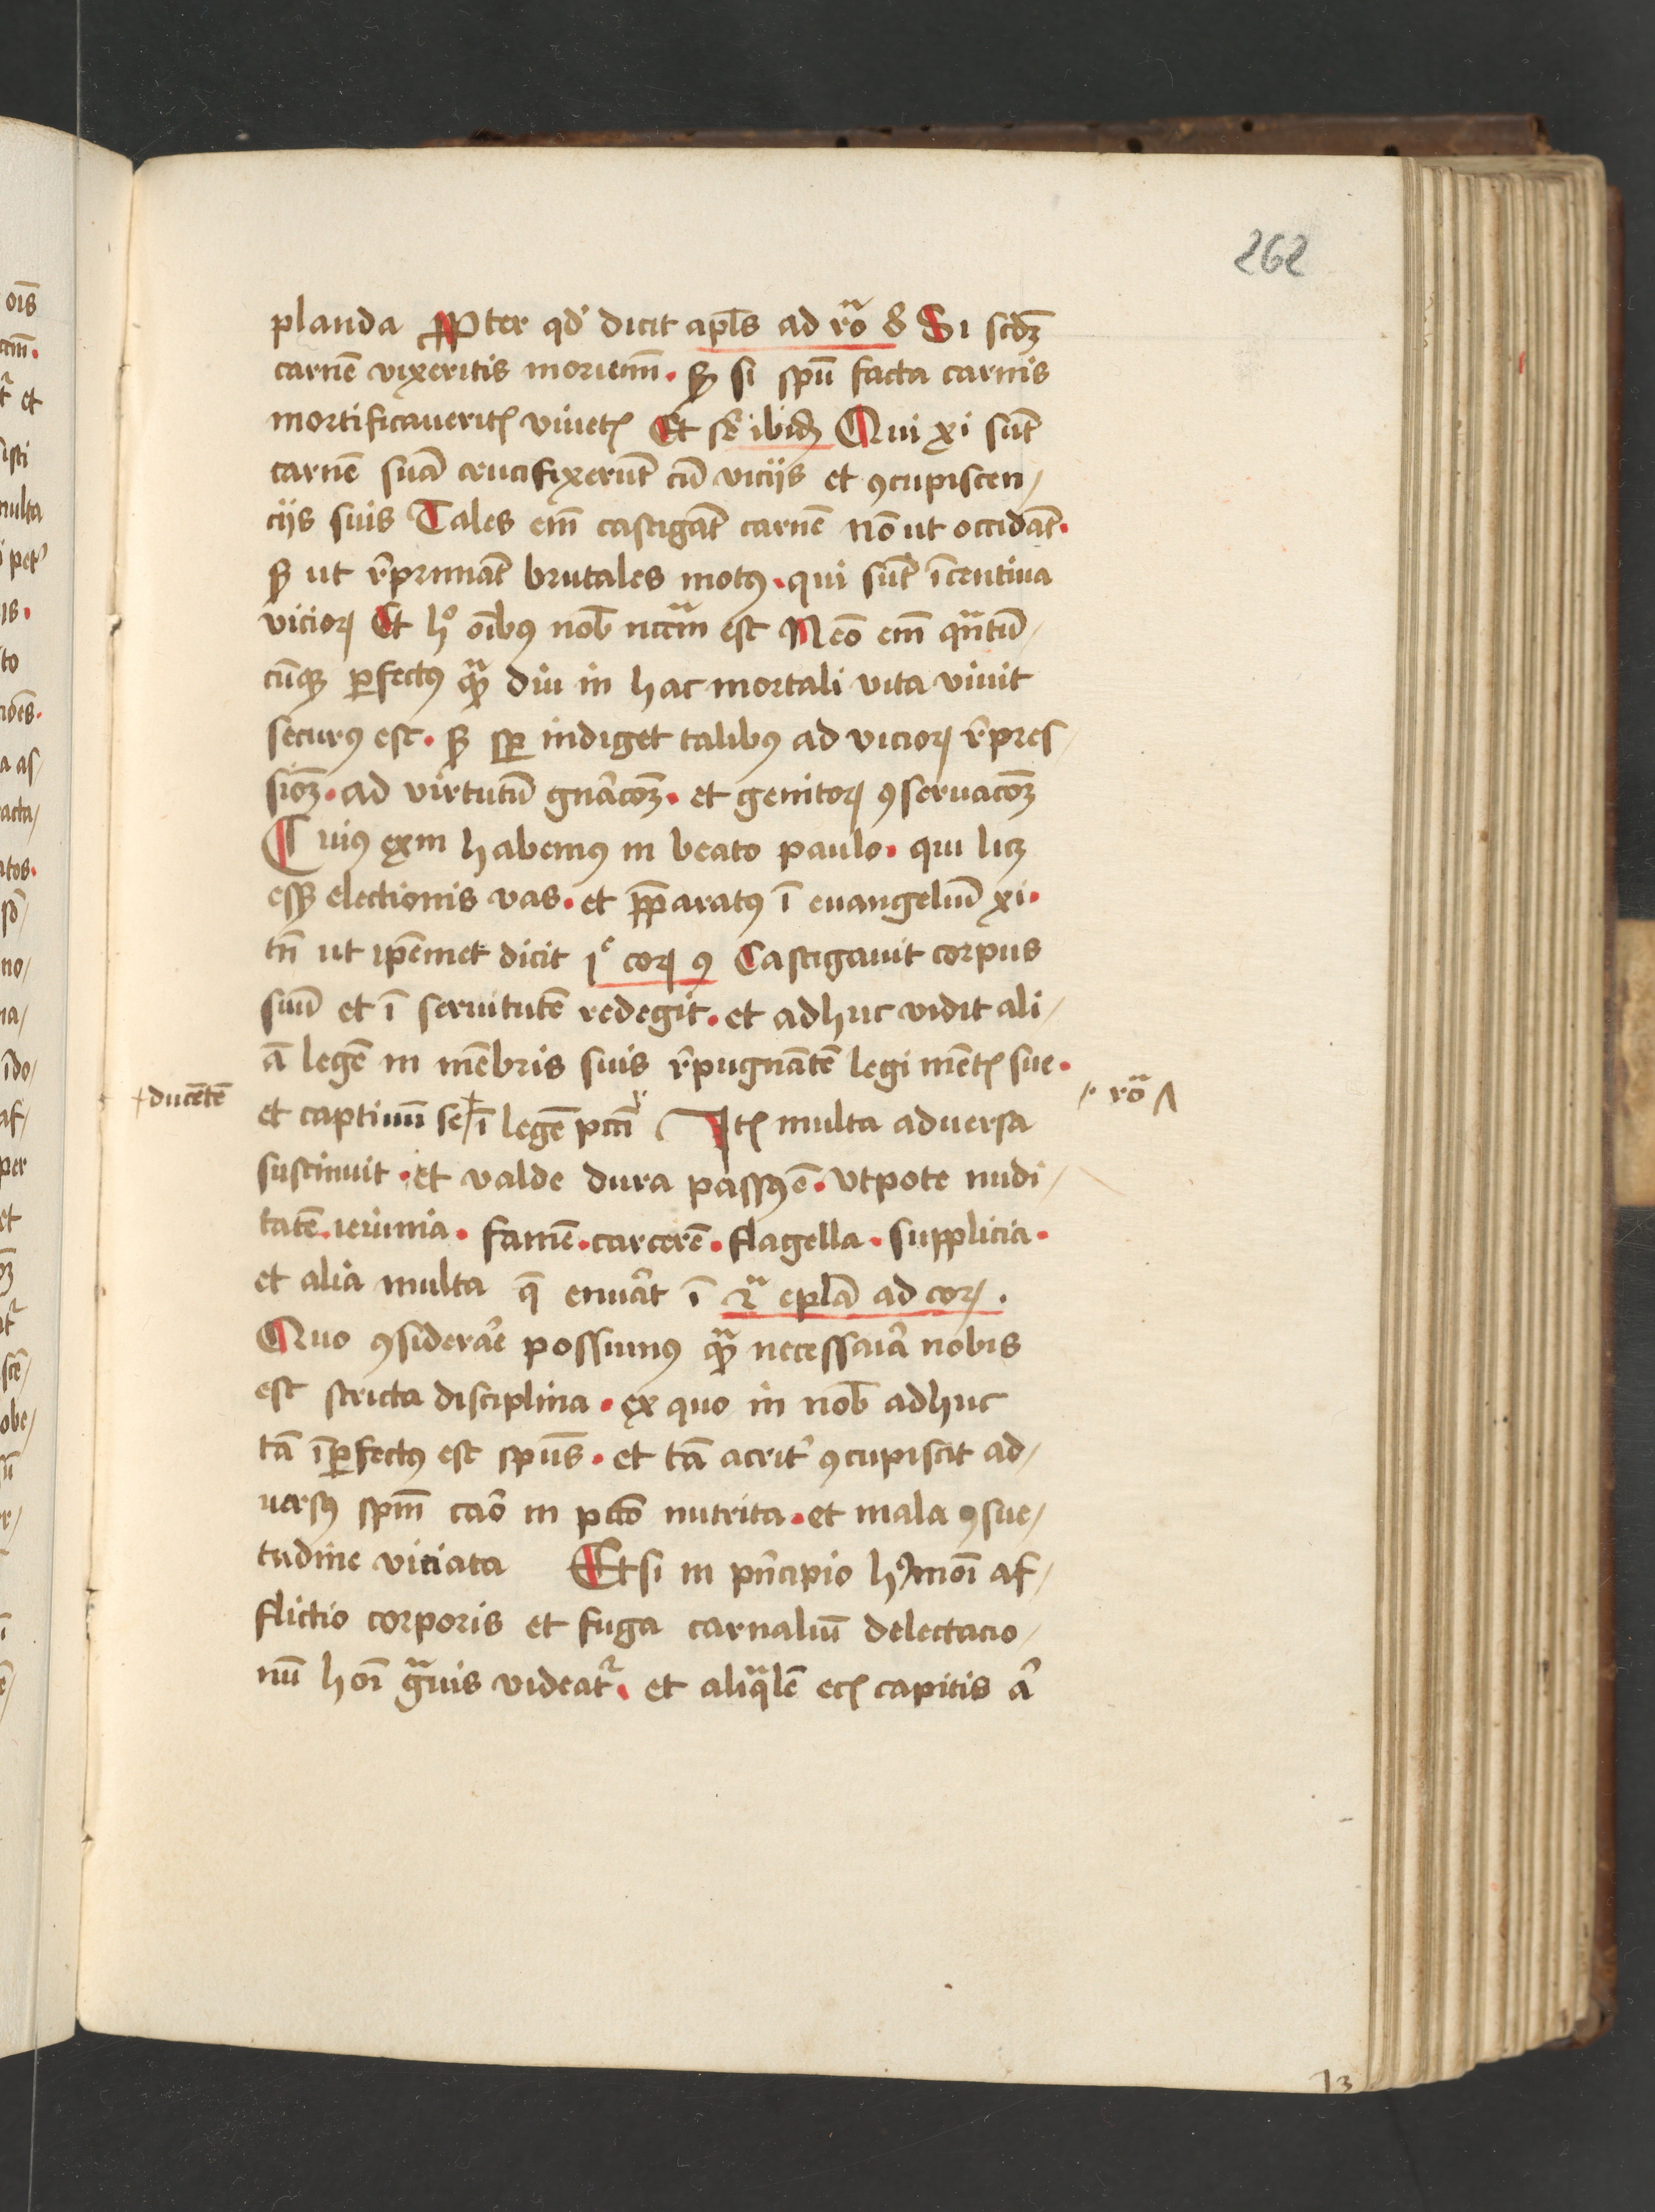 262
planda ꝓpter qd' dicit apl̄s ad ro̅ 8 Si scd̄ꝫ
carnē vixeritis moriemī · sꝫ si spū facta carnis
mortificaueritꝭ viuetꝭ Et ibidē Qui xi sūt
carnē suā crucifixerūt cū viciis et ꝯcupiscen/
ciis suis Tales em̄ castigāt carnē nō ut occidāt ·
sꝫ ut rep̄mant brutales motꝰ · qui sūt īcentiua
vicioꝝ Et hº oībꝰ nob̄ nccm̄ est Nēo em̄ qᵃntū/
cūqꝫ ꝑfectꝰ qᵃꝫ diu in hac mortali vita viuit
securꝰ est · sꝫ sꝑ indiget talibꝰ ad vicioꝝ r̄pres/
sioꝫ · ad virtutū gn̄acoꝫ · et genitoꝝ ꝯseruacoꝫ
Cuiꝰ exm̄ habemꝰ in beato paulo · qui licꝫ
essꝫ electionis vas · et p̄paratꝰ ī euangeliū xi ·
tn̄ ut ip̄emet dicit 1ᵉ coꝝ 9 Castigauit corpus
suū et ī seruitutē redegit · et adhuc vidit ali/
ā legē in mēbris suis r̄pugnātē legi mētꝭ sue ·
+ducētē
·/· ro̅ ʌ
et captiuū se + ī legē pcc̄i Itꝭ multa aduersa
sustinuit · et valde dura passꝰ ē · Vtpote nudi/
tatē · ieiunia · famē · carcerē · flagella · supplicia ·
et alia multa q̄ enūat ī 2ᵃ epl̄a ad coꝝ ·
Quo ꝯsiderāe possumꝰ qᵃꝫ necessāia nobis
est stricta disciplina · ex quo in nob̄ adhuc
tā īꝑfectꝰ est spūs · et tā acrit' ꝯcupiscit ad/
uersꝰ spm̄ cāo in pcc̄o nutrita · et mala ꝯsue/
tudine viciata Et si in p̄ncipio hꝰmōi af/
flictio corporis et fuga carnaliū delectacio/
nū hoī gᵃuis videat᷑ · et aliqᵃlē ecꝭ capitis a'
13